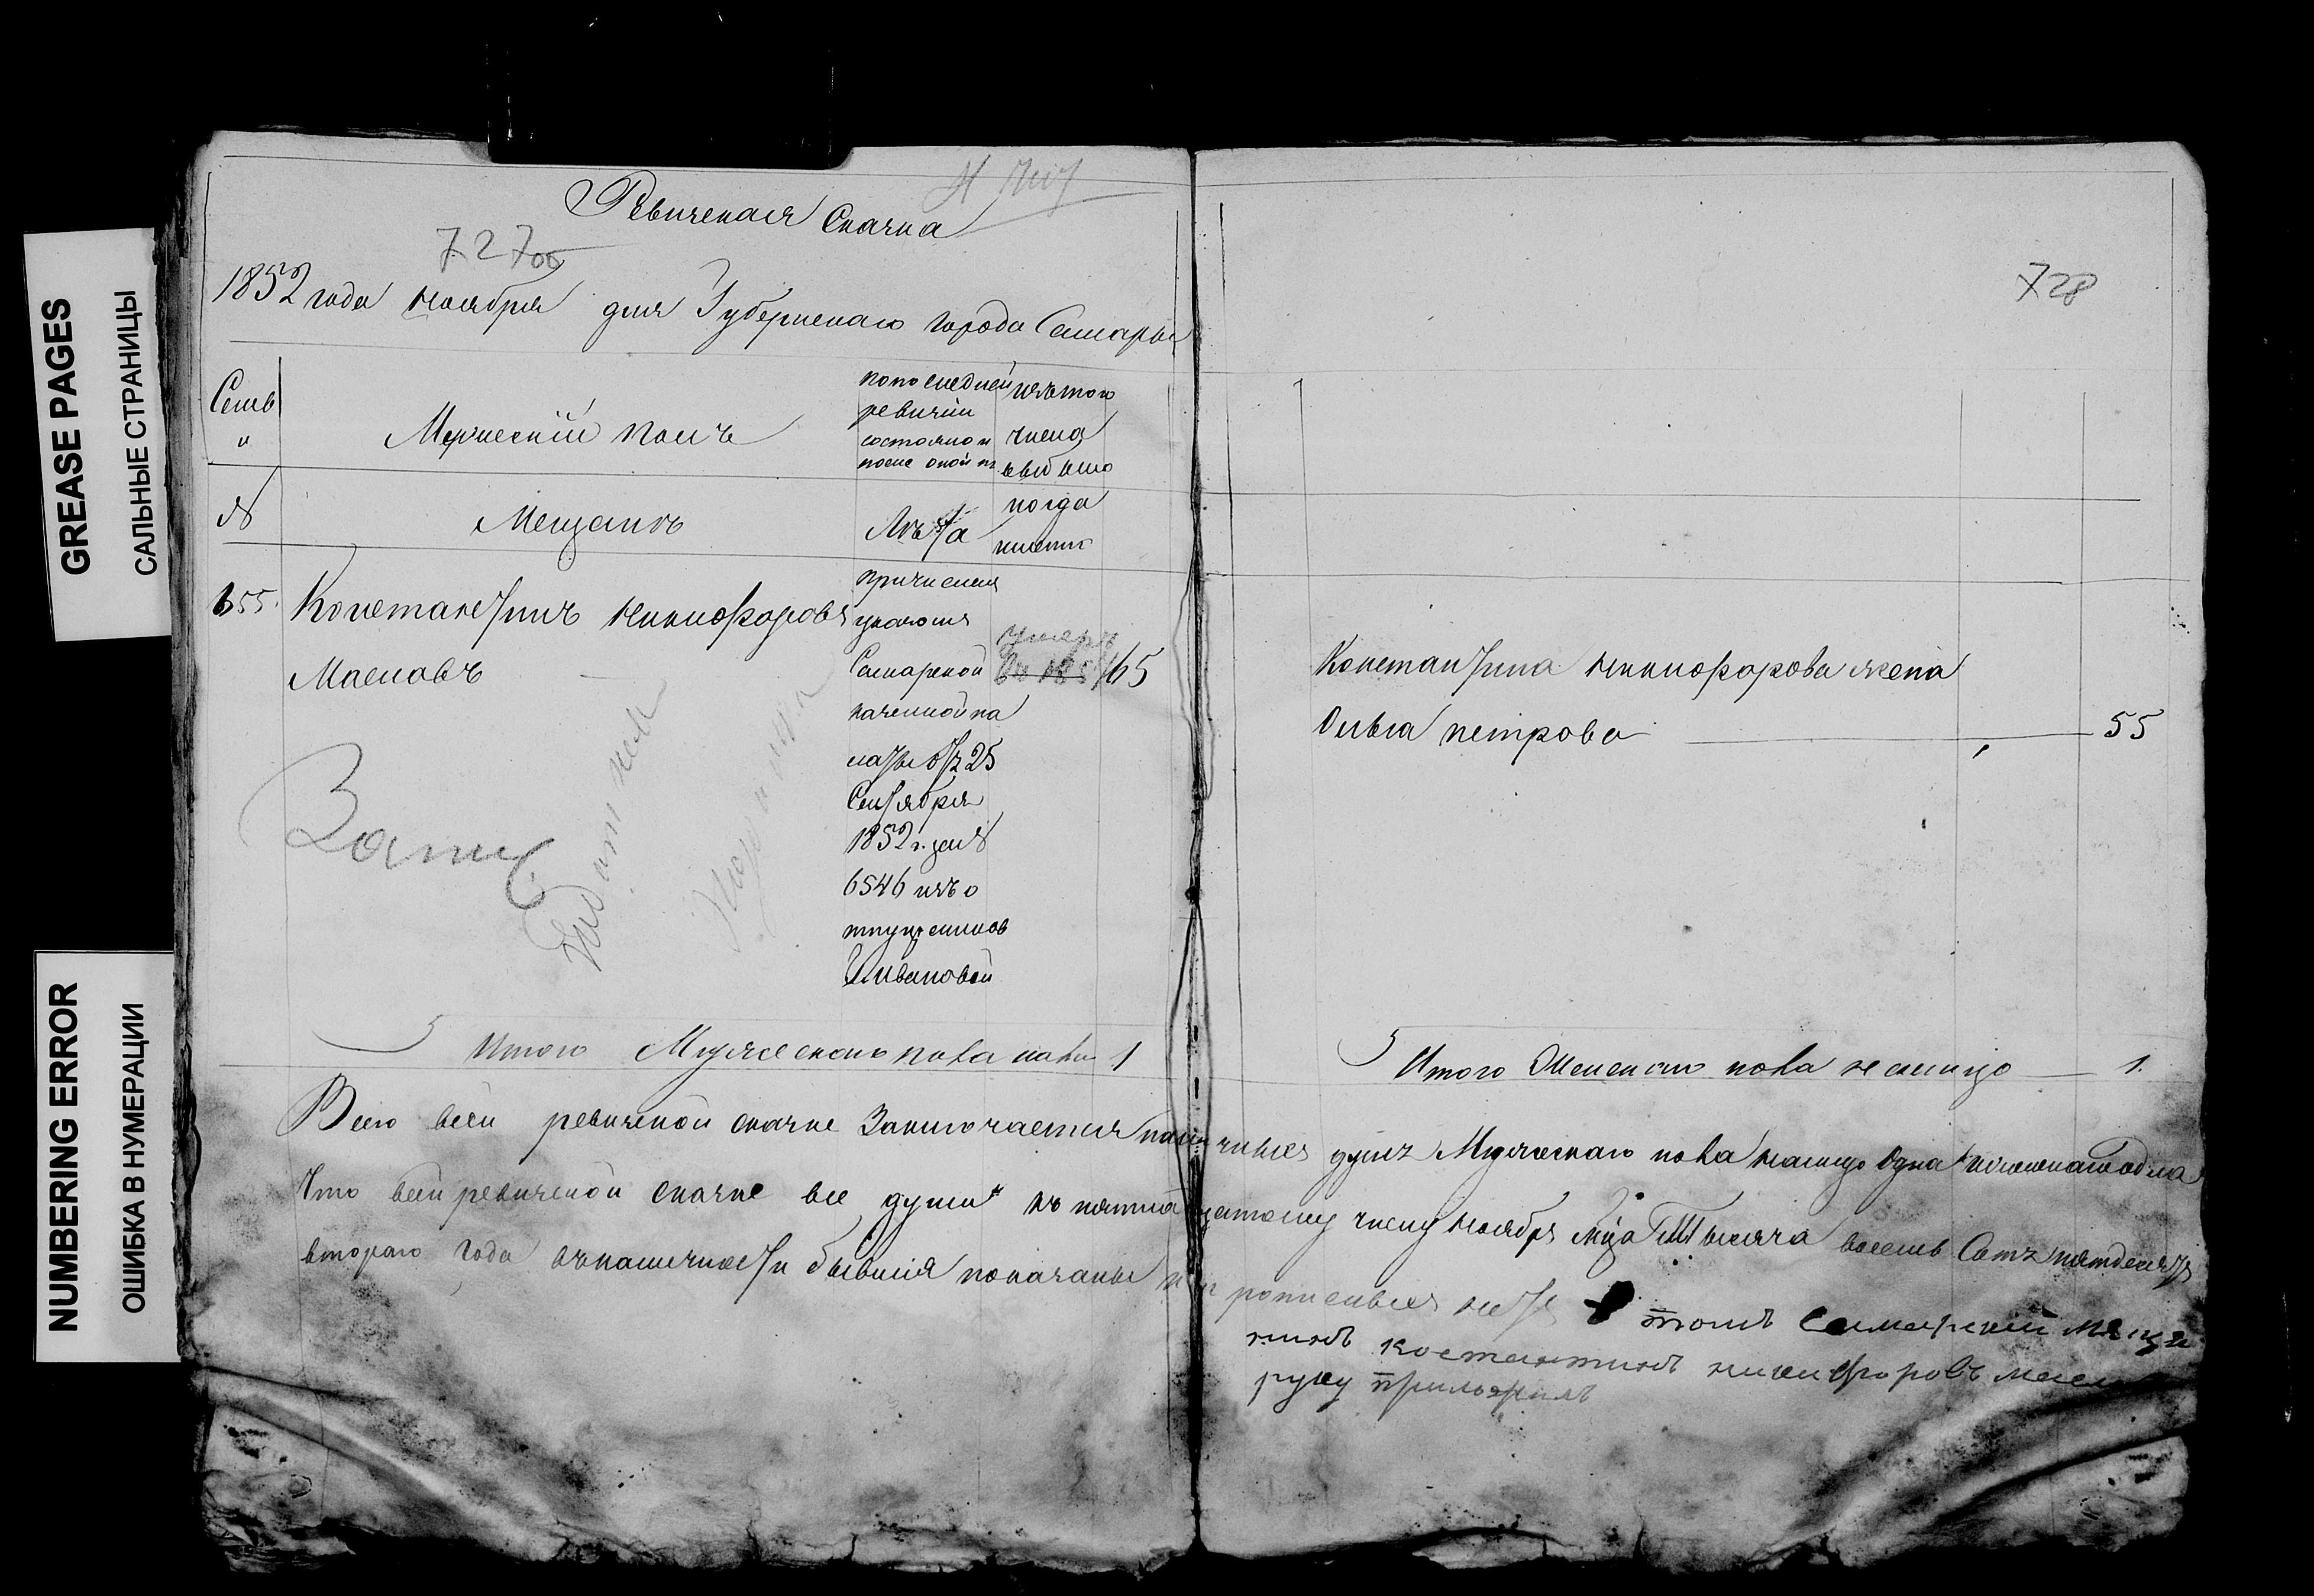 GREASE PAGES
САЛЬНЫЕ СТРАНИЦЫ
NUMBERING ERROR
ОШИБКА В НУМЕРАЦИИ
Ревизская Сказка
727об
1852 года ноября дня Губернскаго города Самары
Семь
Мужескій полъ
по последней
ревизіи
состояло и
после оной
изътого
числа
выбыло
№
Мещанъ
Лѣта
когда
имянно
655.
Константинъ никифоровъ
Масловъ
причислен
указомъ
Самарской
казенной па
латы отъ 25
Сентября
1852 г. за №
6546 изъ о
тпущеников
Г. Ивановой
умеръ
65
Запис.
Итого Мужескаго пола 1
728
Константина никифорова жена
Ольга петрова 55
Итого Женскаго пола налицо 1.
Всего всей ревизской сказке Заключается душъ Мужескаго пола налицо Одна
Что всей ревизской сказке все души къ пятнадцатому числу ноября Тысяча восемь Сотъ пятдесятъ
втораго года вналичности бывшія показаны и прописныхъ нетъ втомъ Самарскій меща
нинъ костантинъ никифоровъ масл
руку приложилъ